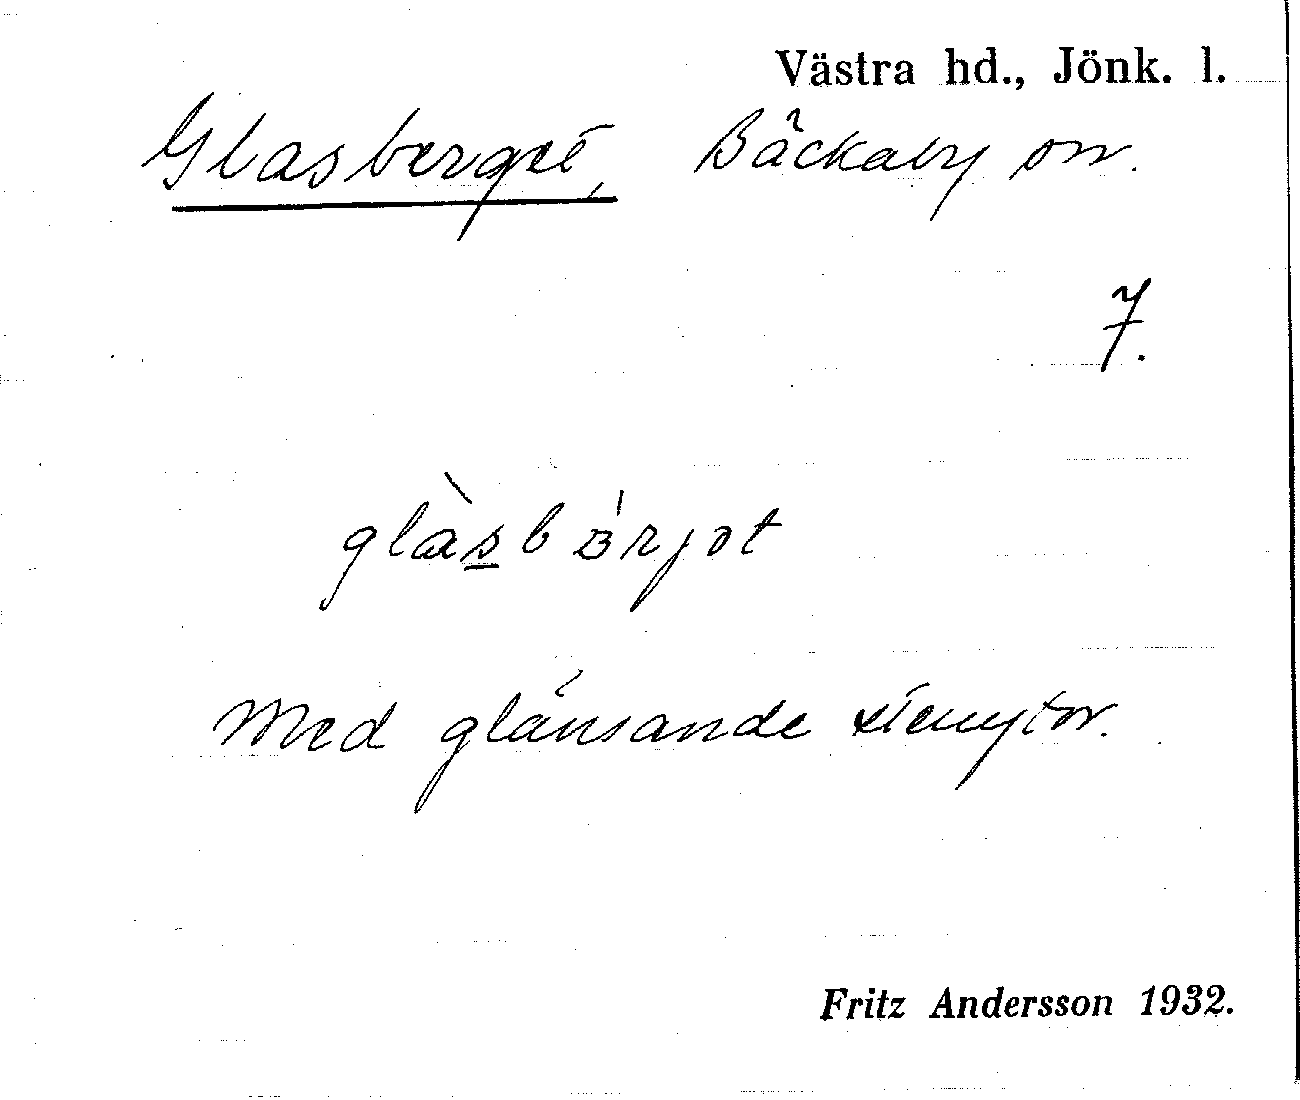 Västra hd., Jönk. l.
Glasberget, Bäckaby sn.
7.
glàsbärjət
Med glänsande stenytor.
Fritz Andersson 1932.